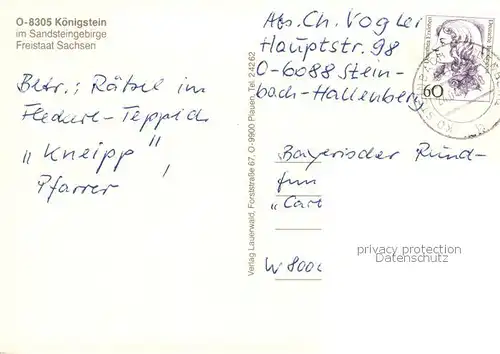 O-8305 Königstein
im Sandsteingebirge
Freistaat Sachsen
Betr.: Rätsel im
Flederl-Teppich
„Kneipp",
Pfarrer
Verlag Lauerwald, Forststraße 67, O-9900 Plauen, Tel. 24262
Abs. Ch. Vogler
Hauptstr. 98
O-6088 Stein-
bach-Hallenberg
60
Bayerischer Rund-
fun
„Cart
W 8000
privacy protection
Datenschutz